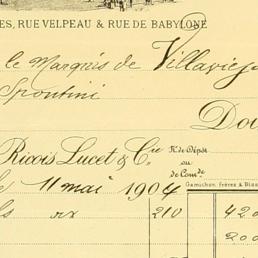 ES, RUE VELPEAU & RUE DE BABYLONE
le Marquis de Villavieja
Spontini
Doi
Ricois Lucet & Cie
No de Dépôt
ou
de Comde
le 11 mai 1904
Gamichon, Frères & Biss
210
420
200